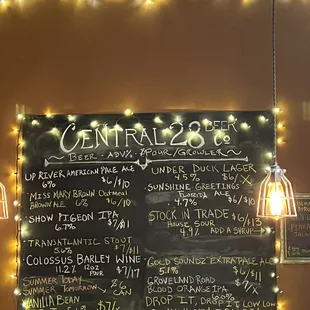 CENTRAL 28 BEER CO
BEER - ABV% - $POUR/GROWLER
UP RIVER AMERICAN PALE ALE
6% $6/$10
MISS MARY BROWN Oatmeal
BROWN ALE 6% $6/$10
SHOW PIGEON IPA
6.7% $7/$11
TRANSATLANTIC STOUT
5.6% $7/$11
COLOSSUS BARLEY WINE
11.2% 12oz POUR $7/17
SUMMER TODAY
SUMMER TOMORROW
$6 CAN
VANILLA BEAN
UNDER DUCK LAGER
4.5% $6/X
SUNSHINE GREETINGS
FLORIDA ALE
4.7% $6/$10
STOCK IN TRADE
HOUSE SOUR $7/$13
4.9% ADD A SYRUP
GOLD SOUNDZ EXTRA PALE ALE
5.1% $6/$11
GROVELAND ROAD
BLOOD ORANGE IPA
6.0%
DROP IT, DROP IT LOW